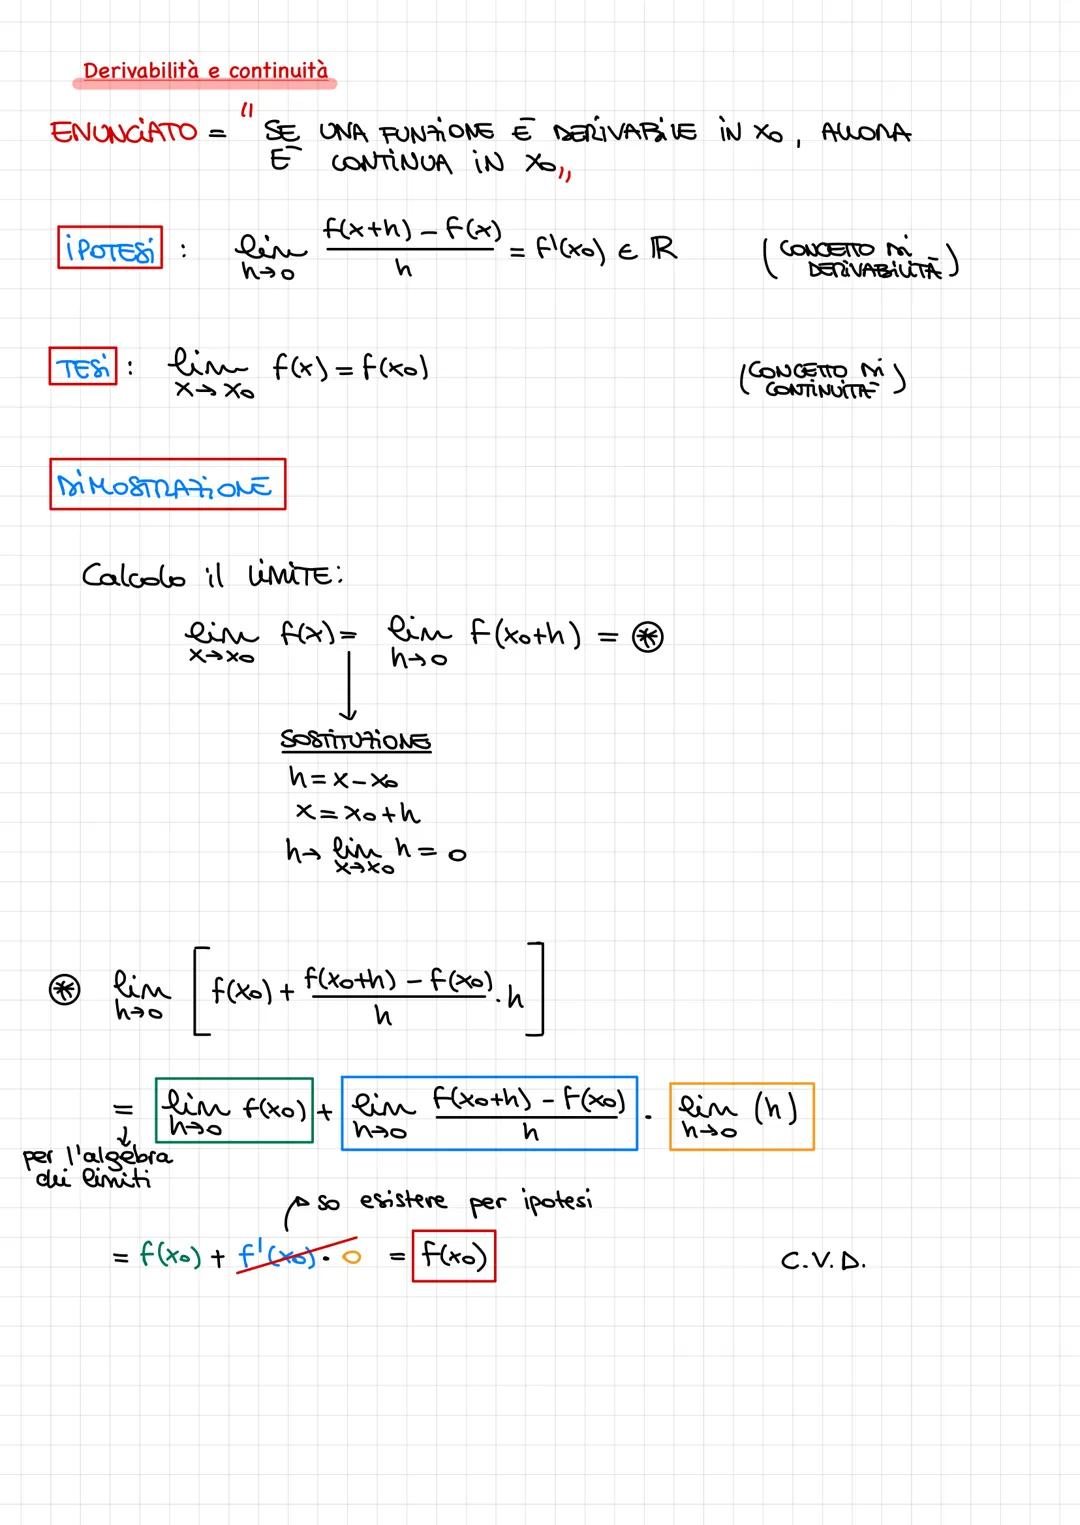 Derivabilità e continuità
ENUNCIATO = "SE UNA FUNZIONE È DERIVABILE IN x₀, ALLORA
È CONTINUA IN x₀"
IPOTESI : lim h→0 f(x+h) - f(x) / h = f'(x₀) ∈ ℝ (CONCETTO DI DERIVABILITÀ)
TESI : lim x→x₀ f(x) = f(x₀) (CONCETTO DI CONTINUITÀ)
DIMOSTRAZIONE
Calcolo il LIMITE:
lim x→x₀ f(x) = lim h→0 f(x₀+h) = ⊛
SOSTITUZIONE
h = x - x₀
x = x₀ + h
h → lim x→x₀ h = 0
⊛ lim h→0 [ f(x₀) + f(x₀+h) - f(x₀) / h · h ]
= lim h→0 f(x₀) + lim h→0 f(x₀+h) - f(x₀) / h · lim h→0 (h)
per l'algebra
dei limiti
so esistere per ipotesi
= f(x₀) + f'(x₀) · 0 = f(x₀) C.V.D.